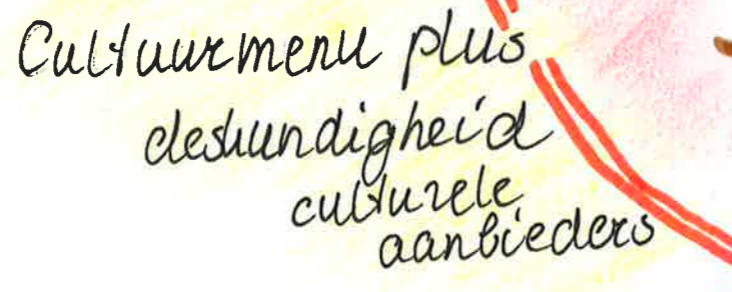 Cultuurmenu plus
deskundigheid
culturele
aanbieders